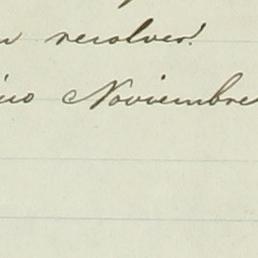 n resolver.
io Noviembre